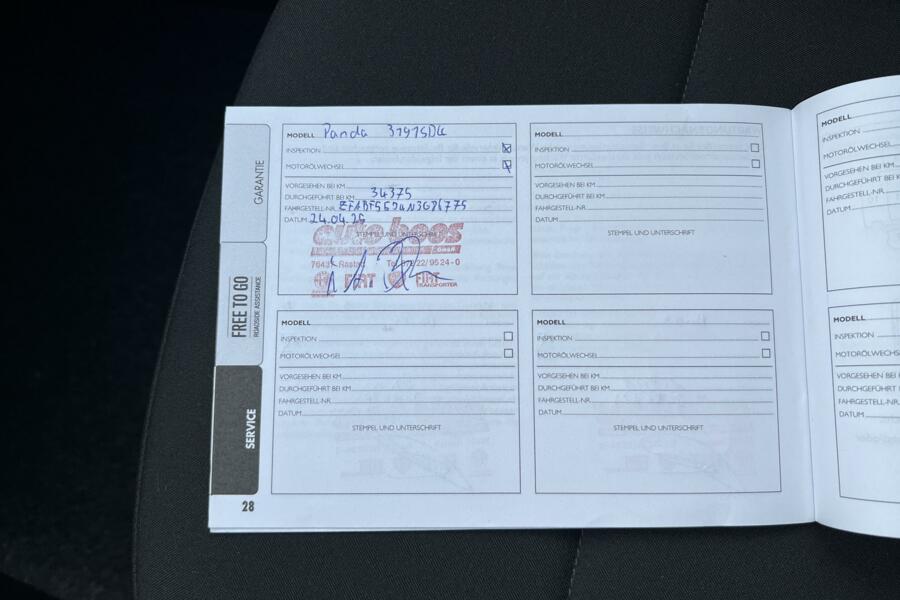 GARANTIE
FREE TO GO
ROADSIDE ASSISTANCE
SERVICE
MODELL Panda
INSPEKTION
MOTORÖLWECHSEL
VORGESEHEN BEI KM
DURCHGEFÜHRT BEI KM 34375
FAHRGESTELL-NR.
DATUM 24.04.25
STEMPEL UND UNTERSCHRIFT
auto boos
GmbH
Tel. 22/9524-0
FIAT FIAT
TRANSPORTER
MODELL
INSPEKTION
MOTORÖLWECHSEL
VORGESEHEN BEI KM
DURCHGEFÜHRT BEI KM
FAHRGESTELL-NR.
DATUM
STEMPEL UND UNTERSCHRIFT
MODELL
INSPEKTION
MOTORÖLWECHSEL
VORGESEHEN BEI KM
DURCHGEFÜHRT BEI KM
FAHRGESTELL-NR.
DATUM
STEMPEL UND UNTERSCHRIFT
MODELL
INSPEKTION
MOTORÖLWECHSEL
VORGESEHEN BEI KM
DURCHGEFÜHRT BEI KM
FAHRGESTELL-NR.
DATUM
STEMPEL UND UNTERSCHRIFT
28
MODELL
INSPEKTION
MOTORÖLWECHSEL
VORGESEHEN BEI K
DURCHGEFÜHRT BEI K
FAHRGESTELL-NR.
DATUM
MODELL
INSPEKTION
MOTORÖLWECHS
VORGESEHEN BEI
DURCHGEFÜHRT
FAHRGESTELL-NR.
DATUM